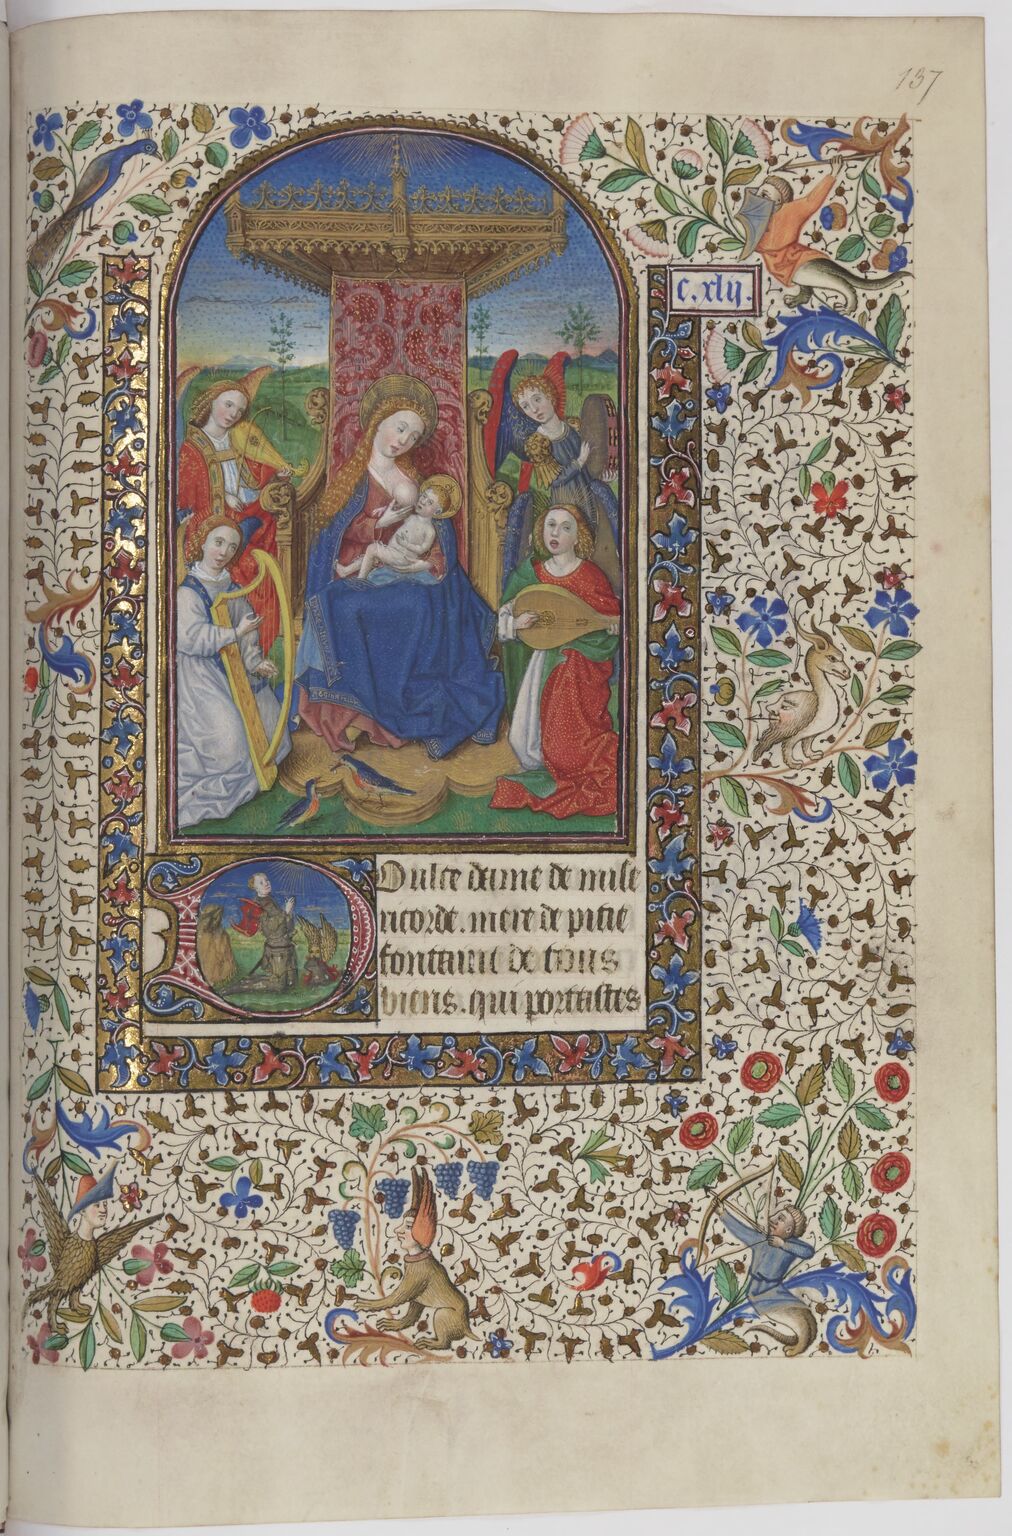 137
c. xlij.
Dulce dame de mise
ricorde. mere de pitie
fontaine de tous
biens. qui portastes